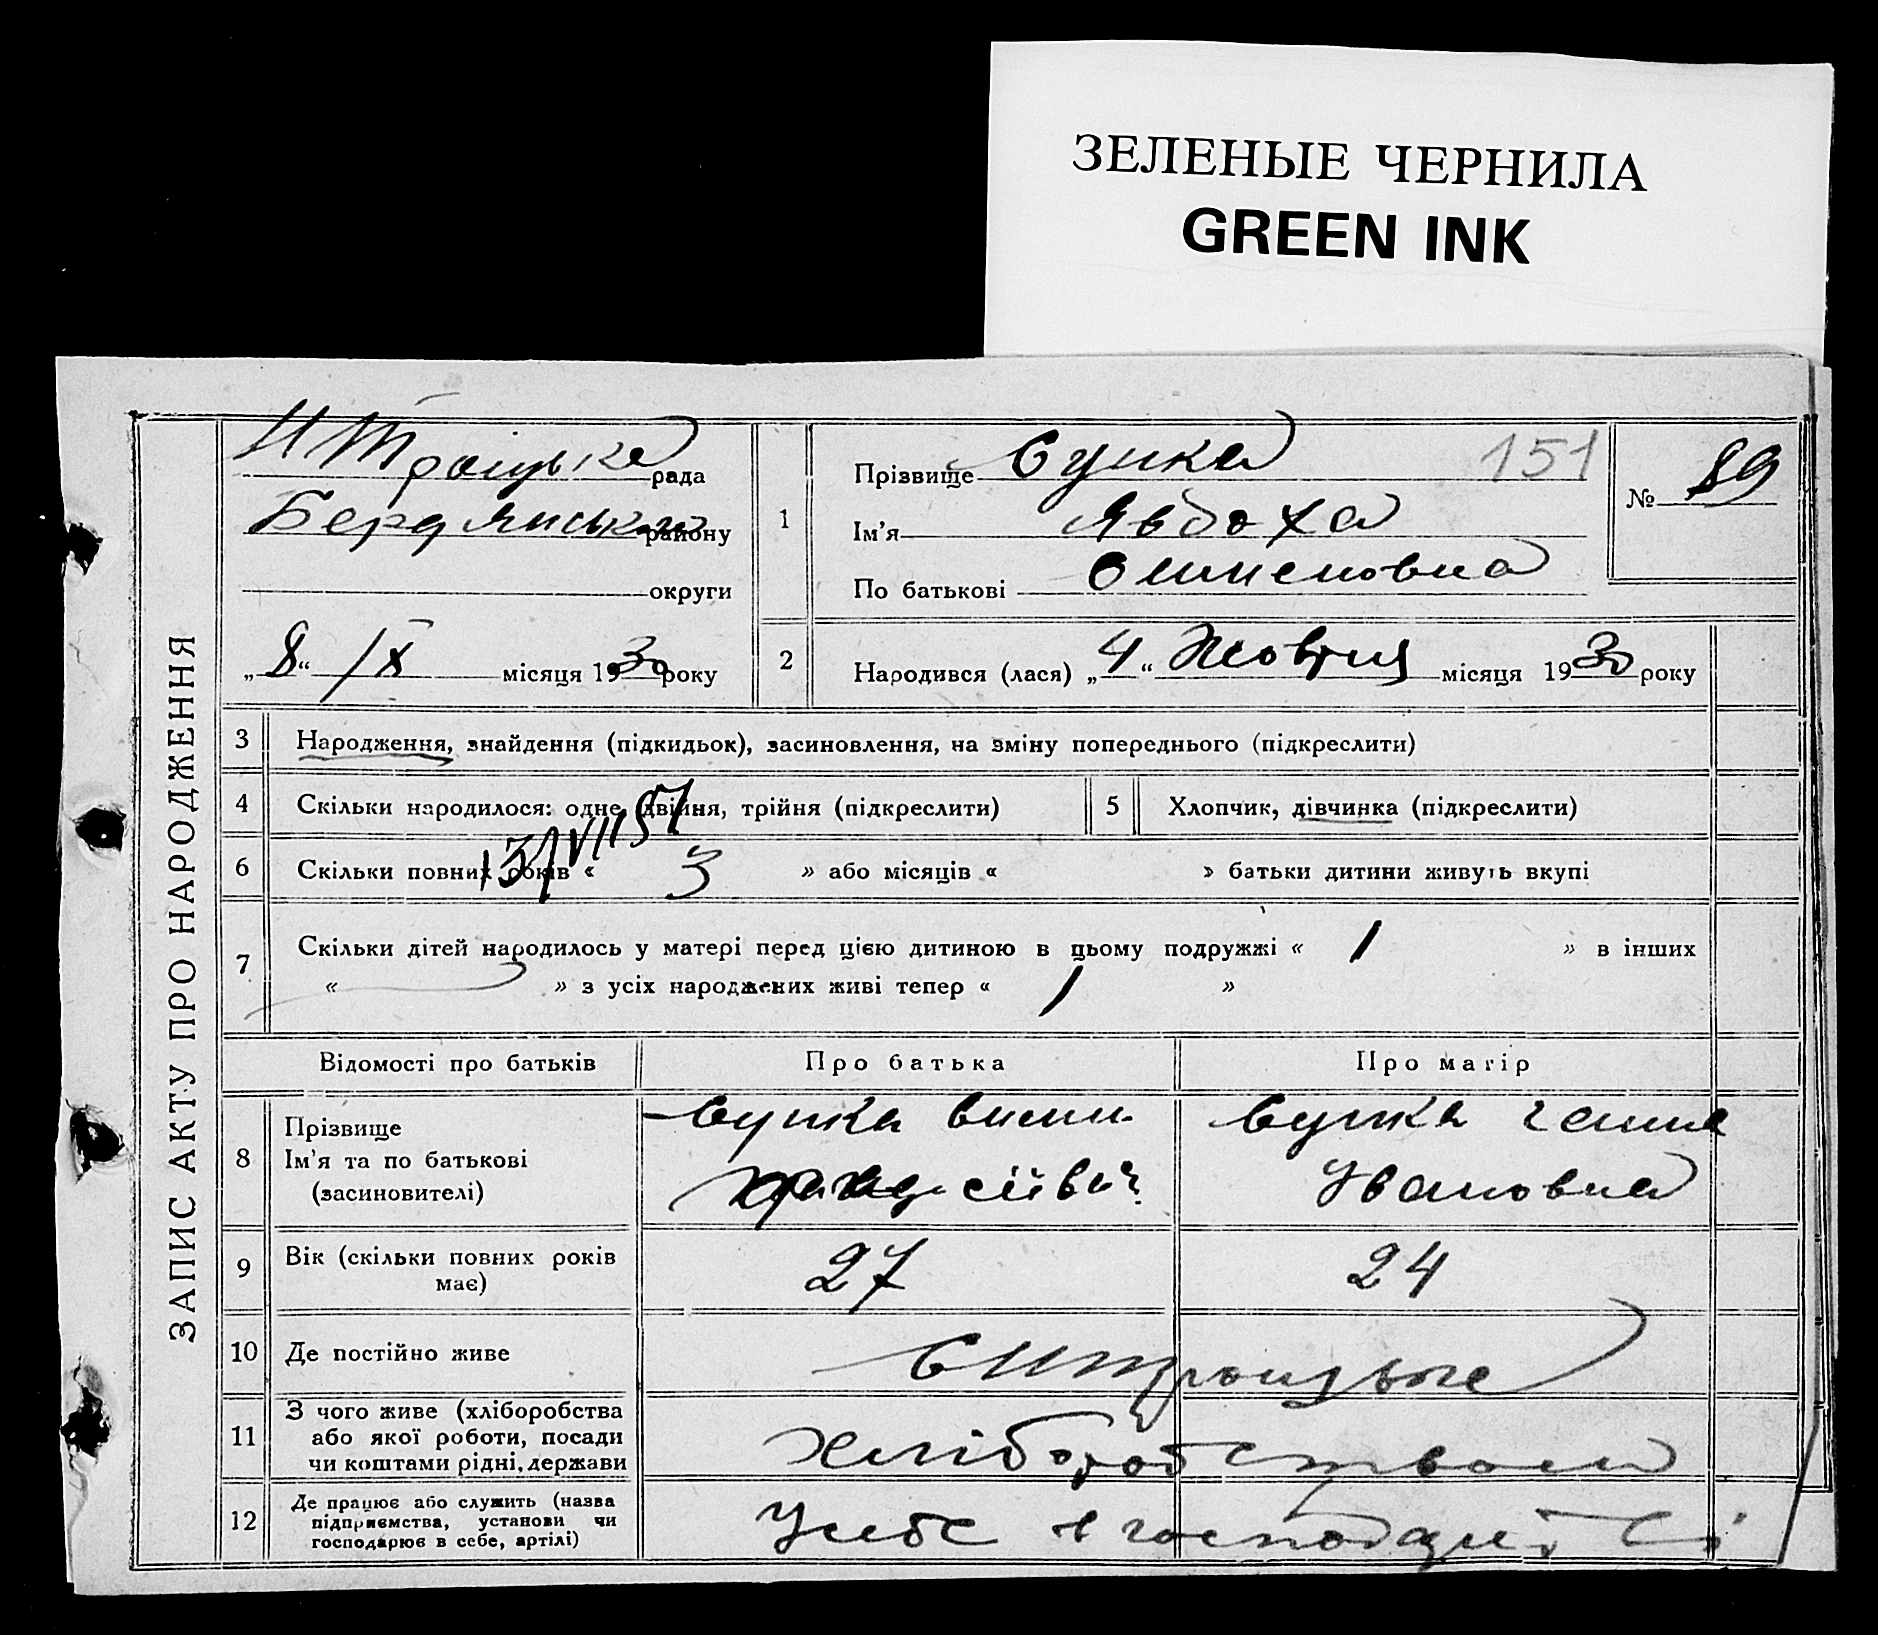 ЗЕЛЕНЫЕ ЧЕРНИЛА
GREEN INK
ЗАПИС АКТУ ПРО НАРОДЖЕННЯ
Н Троіцька рада
Бердянськ району
округи
„ 8 “ IX місяця 1930 року
1
Прізвище 151
Ім’я Явдоха
По батькові
№ 89
2
Народився (лася) „ 4 “ Жовтня місяця 1930 року
3 Народження, знайдення (підкидьок), засиновлення, на зміну попереднього (підкреслити)
4 Скільки народилося: одне, двійня, трійня (підкреслити)
5 Хлопчик, дівчинка (підкреслити)
6 Скільки повних років « 3 » або місяців « » батьки дитини живуть вкупі
7 Скільки дітей народилось у матері перед цією дитиною в цьому подружжі « 1 » в інших
« » з усіх народжених живі тепер « 1 »
Відомості про батьків Про батька Про матір
8 Прізвище
Ім’я та по батькові
(засиновителі)
Ганна
Ивановна
9 Вік (скільки повних років має) 27 24
10 Де постійно живе
11 З чого живе (хліборобства або якої роботи, посади чи коштами рідні, держави
Хліборобством
12 Де працює або служить (назва підприємства, установи чи господарює в себе, артілі)
У себе в